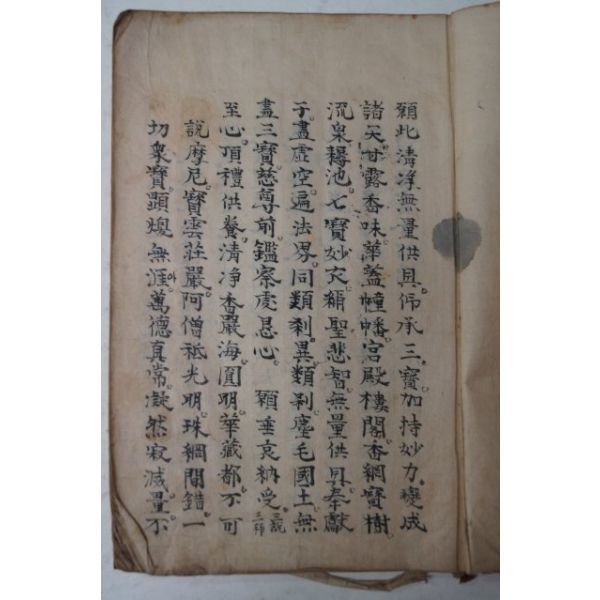 願此清净無量供具仰承三寶加持妙力變成
諸天甘露香味華盖幢幡宮殿樓閣香網寶樹
流泉池七寶妙衣縜聖悲智無量供具奉獻
于盡虛空遍法界同類刹異類刹塵毛國土無
盡三寶慈尊前鑑察處懇心 願垂哀納受三說三拜
至心頂禮供養清净香嚴海圓明華藏都不可
說摩尼寶雲莊嚴阿僧祗光明珠網間錯一
切衆寶顯煥無涯萬德真常凝然寂滅量不